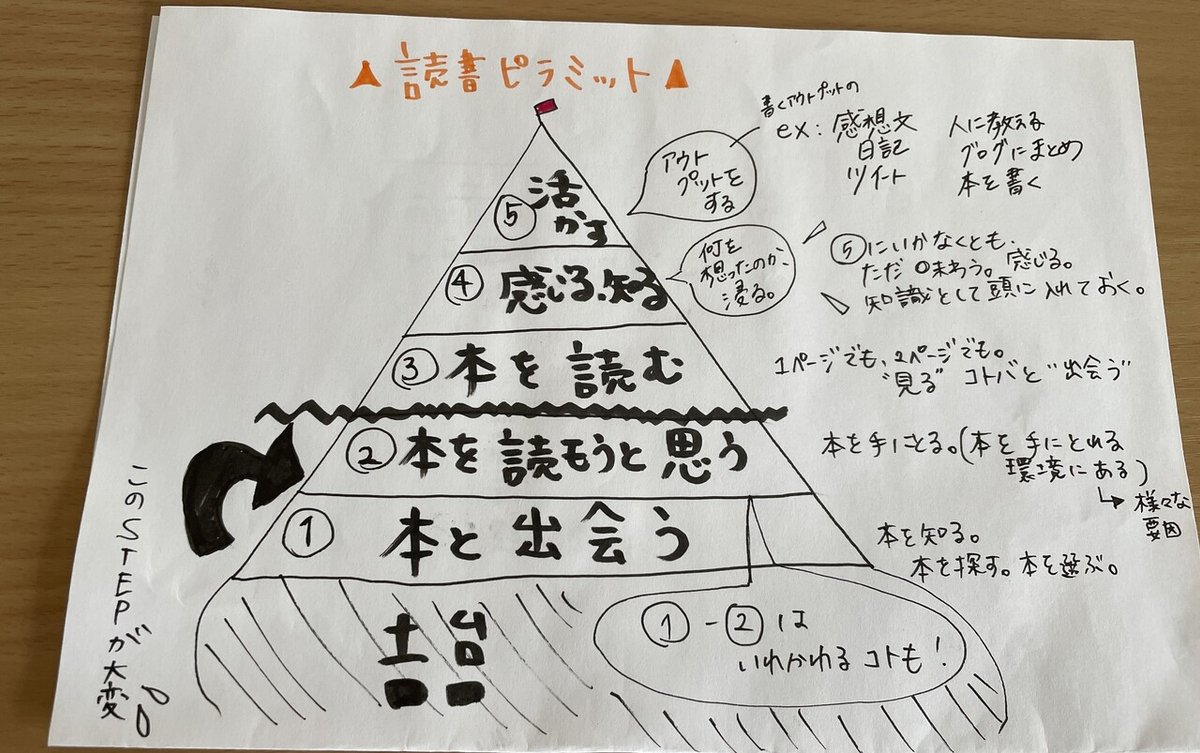 ▲読書ピラミット▲
⑤ 活
かす
アウト
プットを
する
書くアウトプットの
ex: 感想文
日記
ツイート
人に教える
ブログにまとめ
本を書く
④ 感じる、知る
何を
想ったのか、
浸る。
⑤にいかなくとも、
ただ味わう。感じる。
知識として頭に入れておく。
③ 本を読む
1ページでも、2ページでも。
"見る" コトバと"出会う"
② 本を読もうと思う
本を手にとる。(本を手にとれる
環境にある)
↳様々な
要因
① 本と出会う
本を知る。
本を探す。本を選ぶ。
このSTEPが大変
土台
①-②は
いれかわるコトも!